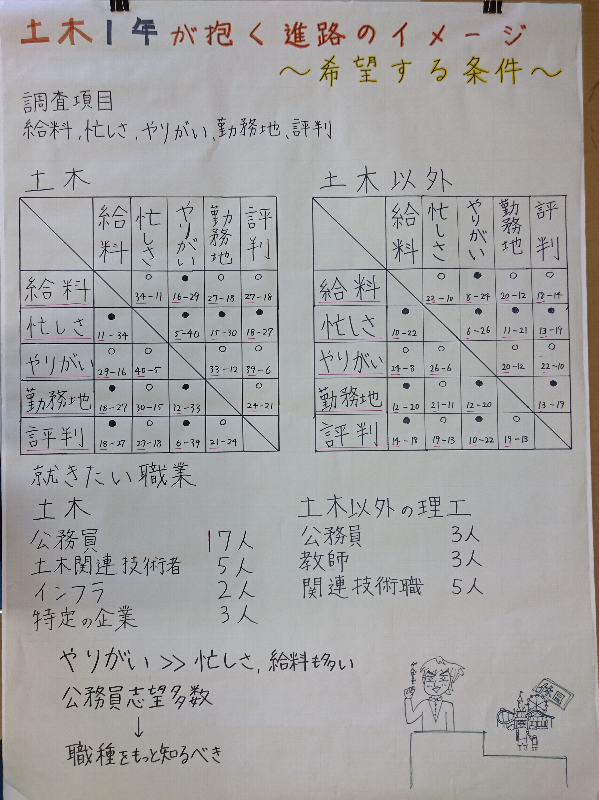 土木1年が抱く進路のイメージ
～希望する条件～
調査項目
給料,忙しさ,やりがい,勤務地,評判
土木
給料 忙しさ やりがい 勤務地 評判
給料 ○ 34-11 ● 16-29 ○ 27-18 ○ 27-18
忙しさ ● 11-34 ● 5-40 ● 15-30 ● 18-27
やりがい ○ 29-16 ○ 40-5 ○ 33-12 ○ 39-6
勤務地 ● 18-27 ○ 30-15 ● 12-33 ○ 24-21
評判 ● 18-27 ○ 27-18 ● 6-39 ● 21-24
土木以外
給料 忙しさ やりがい 勤務地 評判
給料 ○ 22-10 ● 8-24 ○ 20-12 ○ 18-14
忙しさ ● 10-22 ● 6-26 ● 11-21 ● 13-19
やりがい ○ 24-8 ○ 26-6 ○ 20-12 ○ 22-10
勤務地 ● 12-20 ○ 21-11 ● 12-20 ● 13-19
評判 ● 14-18 ○ 19-13 ● 10-22 ○ 19-13
就きたい職業
土木
公務員 17人
土木関連技術者 5人
インフラ 2人
特定の企業 3人
土木以外の理工
公務員 3人
教師 3人
関連技術職 5人
やりがい >> 忙しさ,給料も多い
公務員志望多数
↓
職種をもっと知るべき